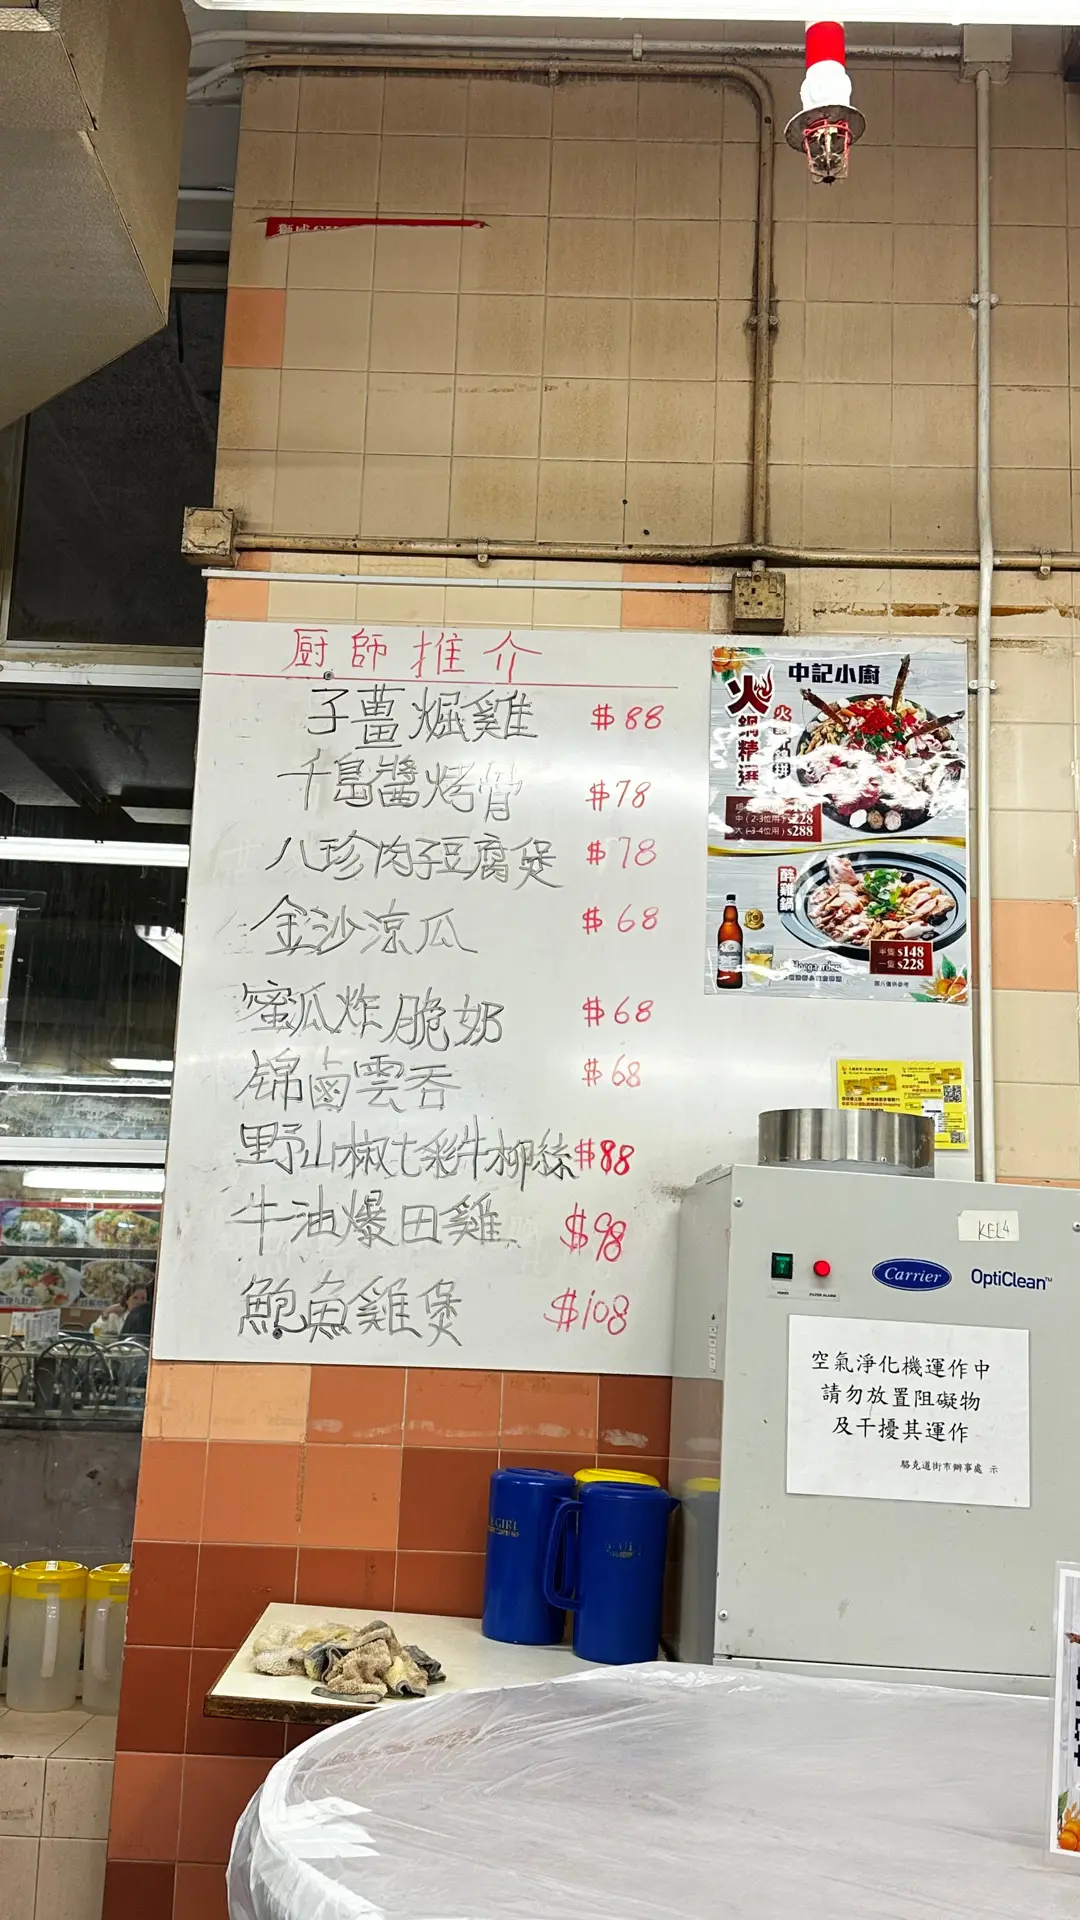 厨師推介
子薑焗雞 $88
千島醬烤骨 $78
八珍肉子豆腐煲 $78
金沙涼瓜 $68
蜜瓜炸脆奶 $68
锦鹵雲吞 $68
野山椒七彩牛柳絲 $88
牛油爆田雞 $98
鮑魚雞煲 $108
中記小廚
火鍋精選
中(2-3位用) $228
大(3-4位用) $288
醉雞鍋
半隻 $148
一隻 $228
圖片僅供參考
KEL4
Carrier OptiClean™
空氣淨化機運作中
請勿放置阻礙物
及干擾其運作
駱克道街市辦事處 示